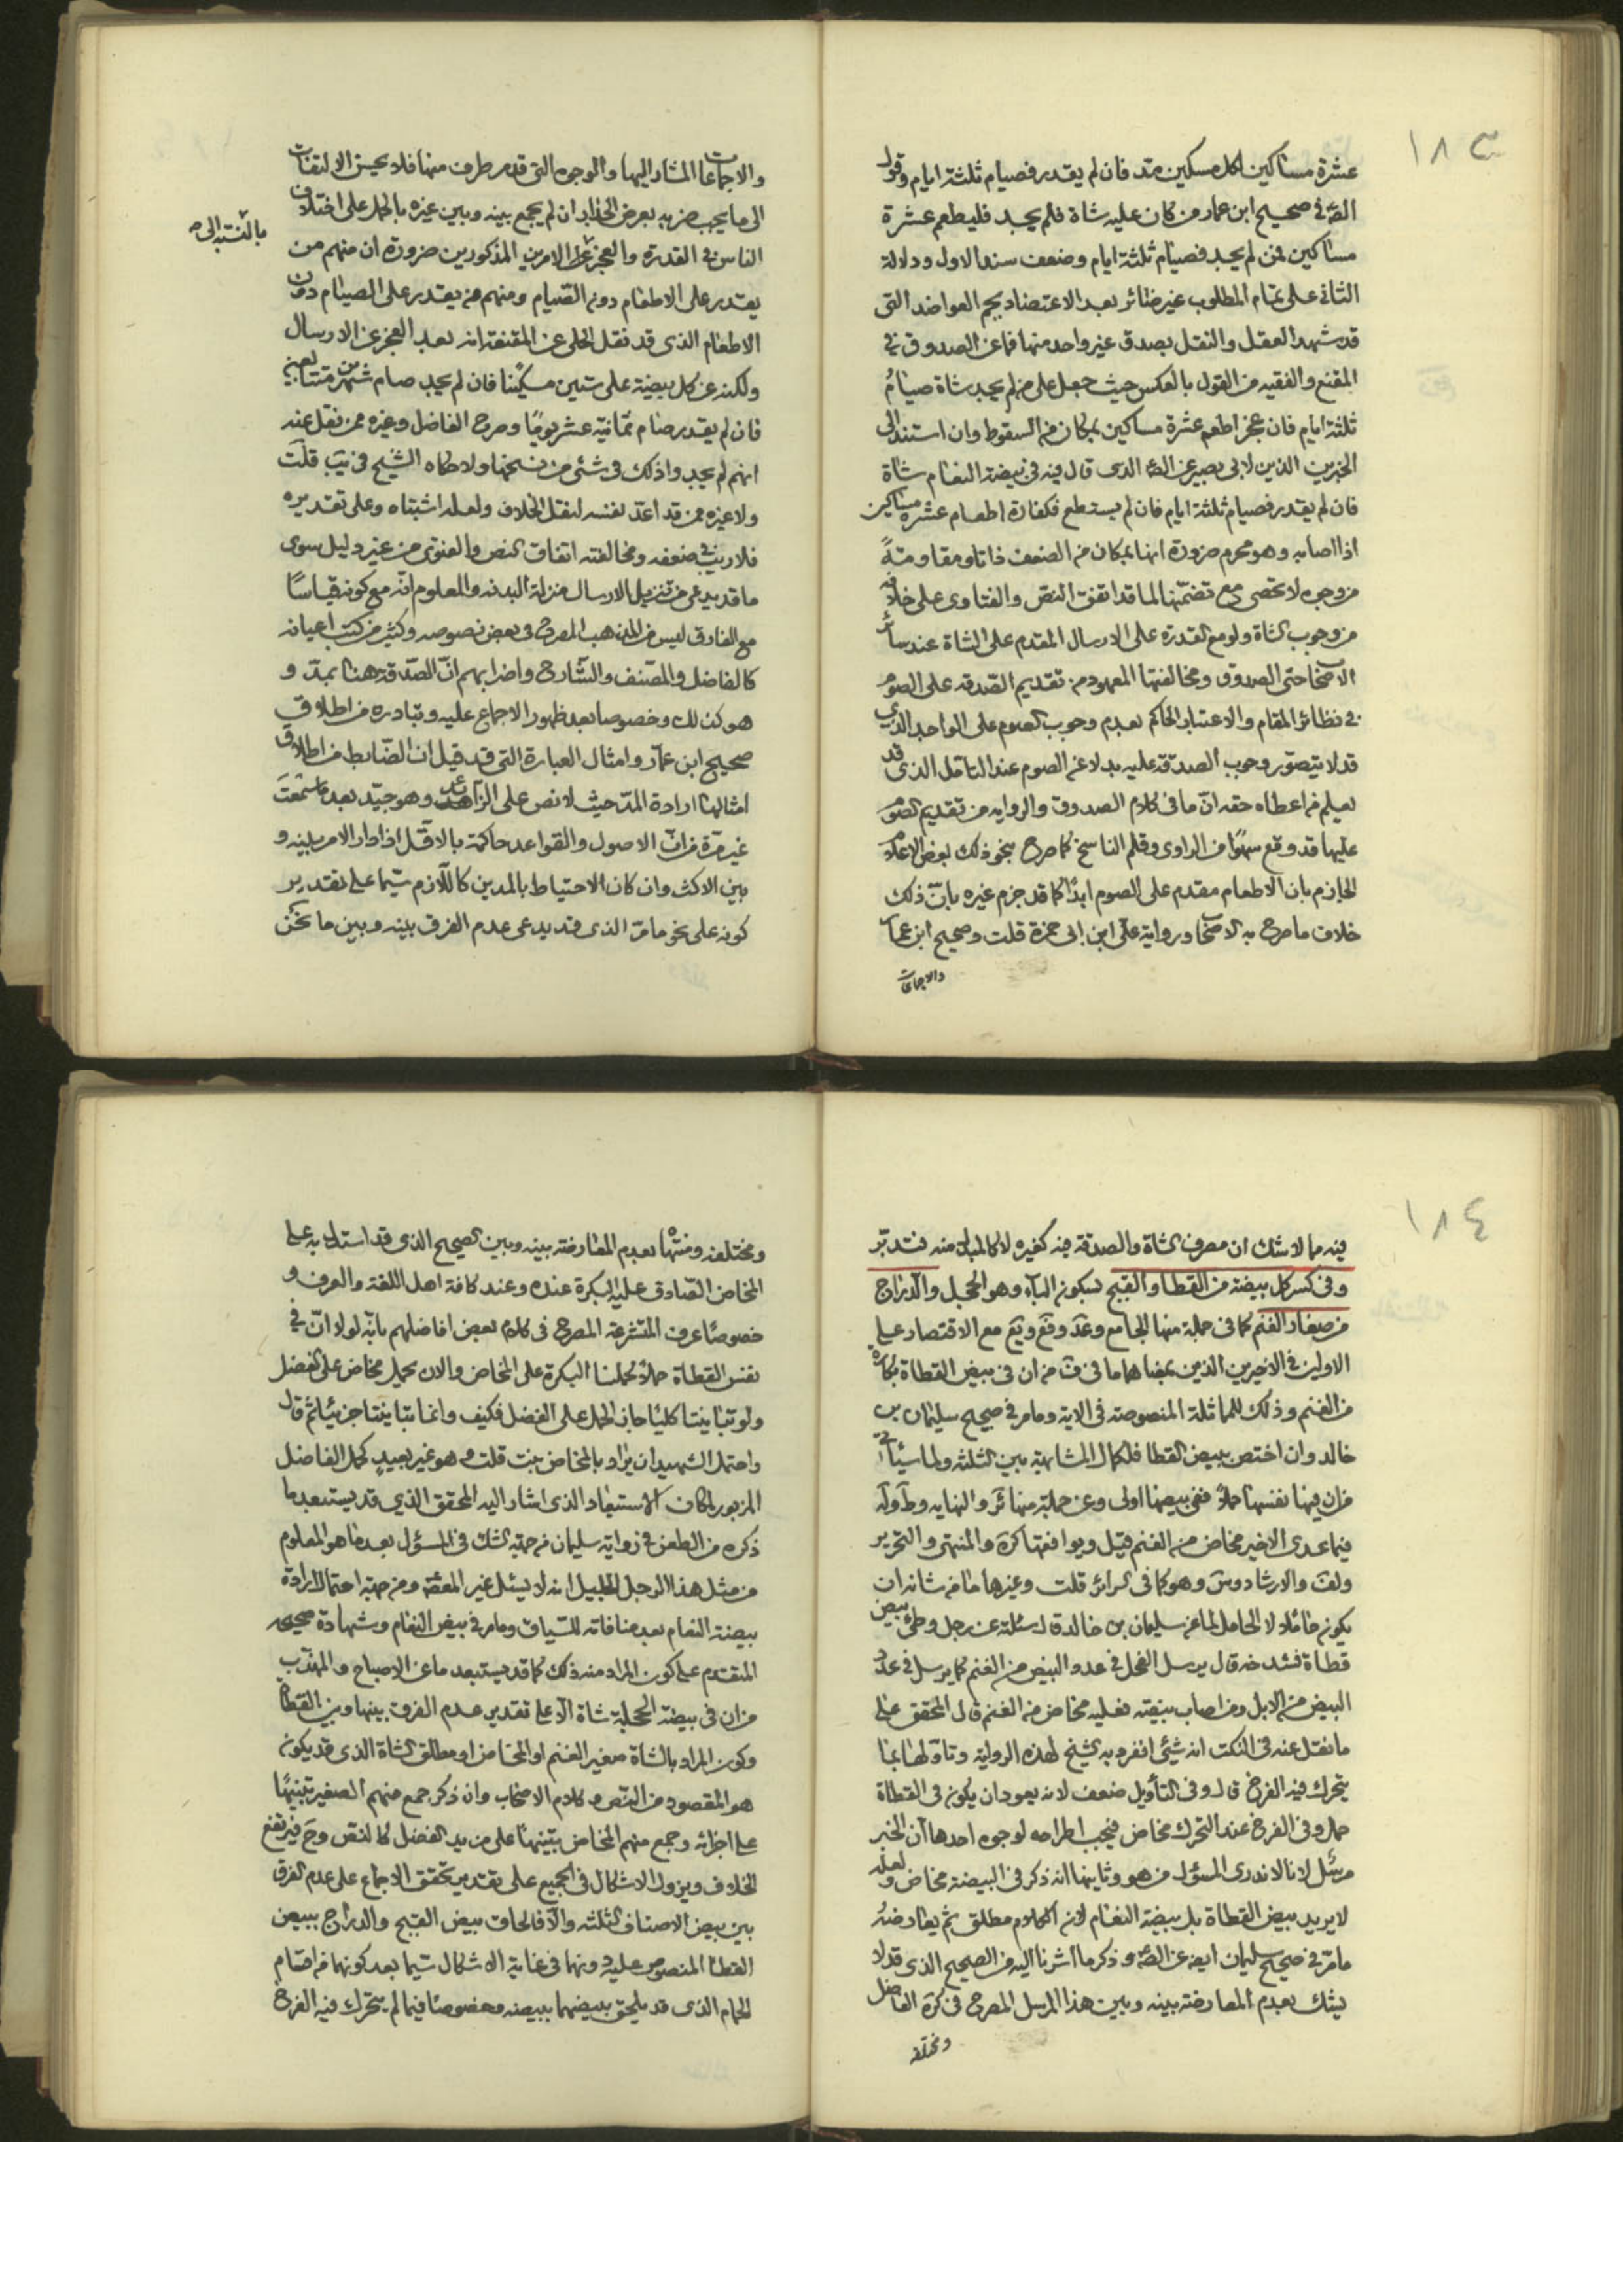 ١٨٣
عشرة مساكين لكل مسكين مد فان لم يقدر فصيام ثلثة ايام وقول
الصم في صحيح ابن عمار من كان عليه شاة فلم يجد فليطعم عشرة
مساكين فمن لم يجد فصيام ثلثة ايام وضعف سند الاول ودلالة
الثاني على تمام المطلوب غير ضائر بعد الاعتضاد بجم العواضد التي
قد شهد العقل والنقل بصدق غير واحد منها فما عن الصدوق في
المقنع والفقيه من القول بالعكس حيث جعل على من لم يجد شاة صيام
ثلثة ايام فان عجز اطعم عشرة مساكين بمكان من السقوط وان استند الى
الخبرين الذين لابى بصير عن الصم الذى قال فيه فى بيضة النعام شاة
فان لم يقدر فصيام ثلثة ايام فان لم يستطع فكفارة اطعام عشرة مساكين
اذا اصابه وهو محرم ضرورة انها بمكان من الضعف ذاتا ومقاومةً
من وجوه لا تحصى مع تضمنها لما قد اتفق النص والفتاوى على خلافه
من وجوب الشاة ولو مع القدرة على الارسال المقدم على الشاة عند سائر
الاصحاب حتى الصدوق ومخالفتها المعهود من تقديم الصدقة على الصوم
في نظائر المقام والاعتبار الحاكم بعدم وجوب الصوم على الواجد الذي
قد لا يتصور وجوب الصدقة عليه بدلا عن الصوم عند التامل الذي قد
يعلم من اعطاه حقه ان ما فى كلام الصدوق والرواية من تقديم الصوم
عليها قد وقع سهوًا من الراوى وقلم الناسخ كما صرح بنحو ذلك بعض الاعلام
الجازم بان الاطعام مقدم على الصوم ابدًا كما قد جزم غيره بان ذلك
خلاف ما صرح به الاصحاب ورواية على ابن ابى حمزة قلت وصحيح ابن عمار
والاجماعات
والاجماعات المشار اليها والوجوه التى قدم طرف منها فلا يحسن الالتفات
الى ما يجب ضربه بعرض الجدار ان لم يجمع بينه وبين غيره بالحمل على اختلاف
بالنسبة الى
الناس في القدرة والعجز على الامرين المذكورين ضرورة ان منهم من
يقدر على الاطعام دون الصيام ومنهم من يقدر على الصيام دون
الاطعام الذى قد نقل الحلى عن المقنعة انه بعد العجز عن الارسال
ولكنه عن كل بيضة على ستين مسكينا فان لم يجد صام شهرين متتابعين
فان لم يقدر صام ثمانية عشر يومًا وصرح الفاضل وغيره ممن نقل عنه
انهم لم يجدوا ذلك فى شئ من نسخها ولا حكاه الشيخ في يب قلت
ولا غيره ممن قد اعد نفسه لنقل الخلاف ولعله اشتباه وعلى تقديره
فلا ريب في ضعفه ومخالفته اتفاق النص والفتوى من غير دليل سوى
ما قد يدعى من تنزيل الارسال منزلة البدنة والمعلوم انه مع كونه قياسًا
مع الفارق ليس من المذهب المصرح فى بعض نصوصه وكثير من كتب اعيانه
كالفاضل والمصنف والشارح واضرابهم ان الصدقة هنا بمد و
هو كذلك وخصوصا بعد ظهور الاجماع عليه وتبادره من اطلاق
صحيح ابن عمار وامثال العبارة التى قد قيل ان الضابط من اطلاق
امثالها ارادة المد حيث لا نص على الزائد وهو جيد بعد ما سمعت
غير مرة من ان الاصول والقواعد حاكمة بالاقل اذا دار الامر بينه و
بين الاكثر وان كان الاحتياط بالمدين كاللازم سيما على تقدير
كونه على نحو ما من الذى قد يدعى عدم الفرق بينه وبين ما نحن
١٨٤
فيه مما لا شك ان مصرف الشاة والصدقة فيه كغيره لا كالمبدل منه فتدبر
وفى كسر كل بيضة من القطا والقبج بسكون الباء وهو الحجل والدراج
من صغار الغنم كما فى جملة منها الجامع وعد وقع ويع مع الاقتصار على
الاولين في الاخيرين الذين بمعناهما ما فى ف من ان فى بيض القطاة بكارة
من الغنم وذلك للمماثلة المنصوصة فى الاية وما مر في صحيح سليمان بن
خالد وان اختص ببيض القطا فلكمال المشابهة بين الثلثة ولما سيأتى
من ان فيها نفسها حملاً ففى بيضها اولى وعن جملة منها ئر والنهاية وط وله
فيما عدى الاخير مخاض من الغنم قيل ويوافقها كرة والمنتهى والتحرير
ولف والارشاد وس وهو كما فى السرائر قلت وغيرها ما من شانه ان
يكون حاملا لا الحامل لما عن سليمان بن خالد قال سئلته عن رجل وطئ بيض
قطاة فشدخه قال يرسل الفحل في عدد البيض من الغنم كما يرسل فى عدد
البيض من الابل ومن اصاب بيضة فعليه مخاض من الغنم قال المحقق على
ما نقل عنه فى النكت انه شئ انفرد به الشيخ لهذه الرواية وتاولها بما
يتحرك فيه الفرخ قال وفى التأويل ضعف لانه يعود ان يكون فى القطاة
حمل وفى الفرخ عند التحرك مخاض فيجب اطراحه لوجوه احدها ان الخبر
مرسل لانا لا ندرى المسؤل من هو وثانيها انه ذكر فى البيضة مخاض ولعله
لا يريد بيض القطاة بل بيضة النعام لان الكلام مطلق ثم يعارضه
ما مر في صحيح سليمان ايضه عن الصم وذكر ما اشرنا اليه من الصحيح الذى قد لا
يشك بعدم المعارضة بينه وبين هذا المرسل المصرح فى كرة الفاضل
ومختلفه
ومختلفه ومنتهاه بعدم المعارضة بينه وبين الصحيح الذى قد استدل به على
المخاض الصادق عليه البكرة عنده وعند كافة اهل اللغة والعرف و
خصوصًا عرف المتشرعة المصرح فى كلام بعض افاضلهم بانه لولا ان في
نفس القطاة حملاً لحملنا البكرة على المخاض والان يحمل مخاض على الفضل
ولو تباينتا كليًا جاز الحمل على الفضل فكيف وانما تباينتا جزئيًا ثم قال
واحتمل الشهيد ان يراد بالمخاض بنت قلت وهو غير بعيدٍ كحمل الفاضل
المزبور لمكان الاستبعاد الذى اشار اليه المحقق الذي قد يستبعد ما
ذكره من الطعن في رواية سليمان من جهة الشك فى المسؤل بعد ما هو المعلوم
من مثل هذا الرجل الجليل انه لا يسئل غير المعصوم ومن جهة احتمال ارادة
بيضة النعام بعد منافاته للسياق وما مر في بيض النعام وشهادة صحيحه
المتقدم على كون المراد منه ذلك كما قد يستبعد ما عن الاصباح والمهذب
من ان فى بيضة الحجلة شاة الا على تقدير عدم الفرق بينها وبين القطاة
وكون المراد بالشاة صغير الغنم او المخاض او مطلق الشاة الذى قد يكون
هو المقصود من النص وكلام الاصحاب وان ذكر جمع منهم الصغير تنبيهًا
على اجزائه وجمع منهم المخاض تنبيهًا على مزيد الفضل كالنص وح فيرتفع
الخلاف ويزول الاشكال فى الجميع على تقدير تحقق الاجماع على عدم الفرق
بين بيض الاصناف الثلثة والا فالحاق بيض القبج والدراج ببيض
القطا المنصوص عليه ونهما فى غاية الاشكال سيما بعد كونهما من اقسام
الحمام الذى قد يلحق بيضهما ببيضه وخصوصًا فيما لم يتحرك فيه الفرخ